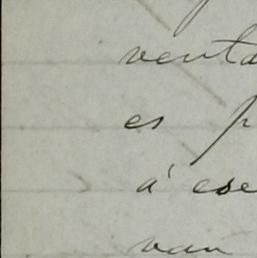 venta
es p
á ese
van